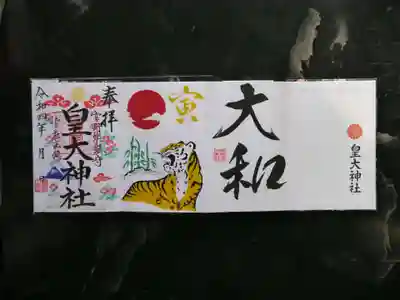 奉拝
皇大神社
令和四年 月 日
寅
大和
皇大神社